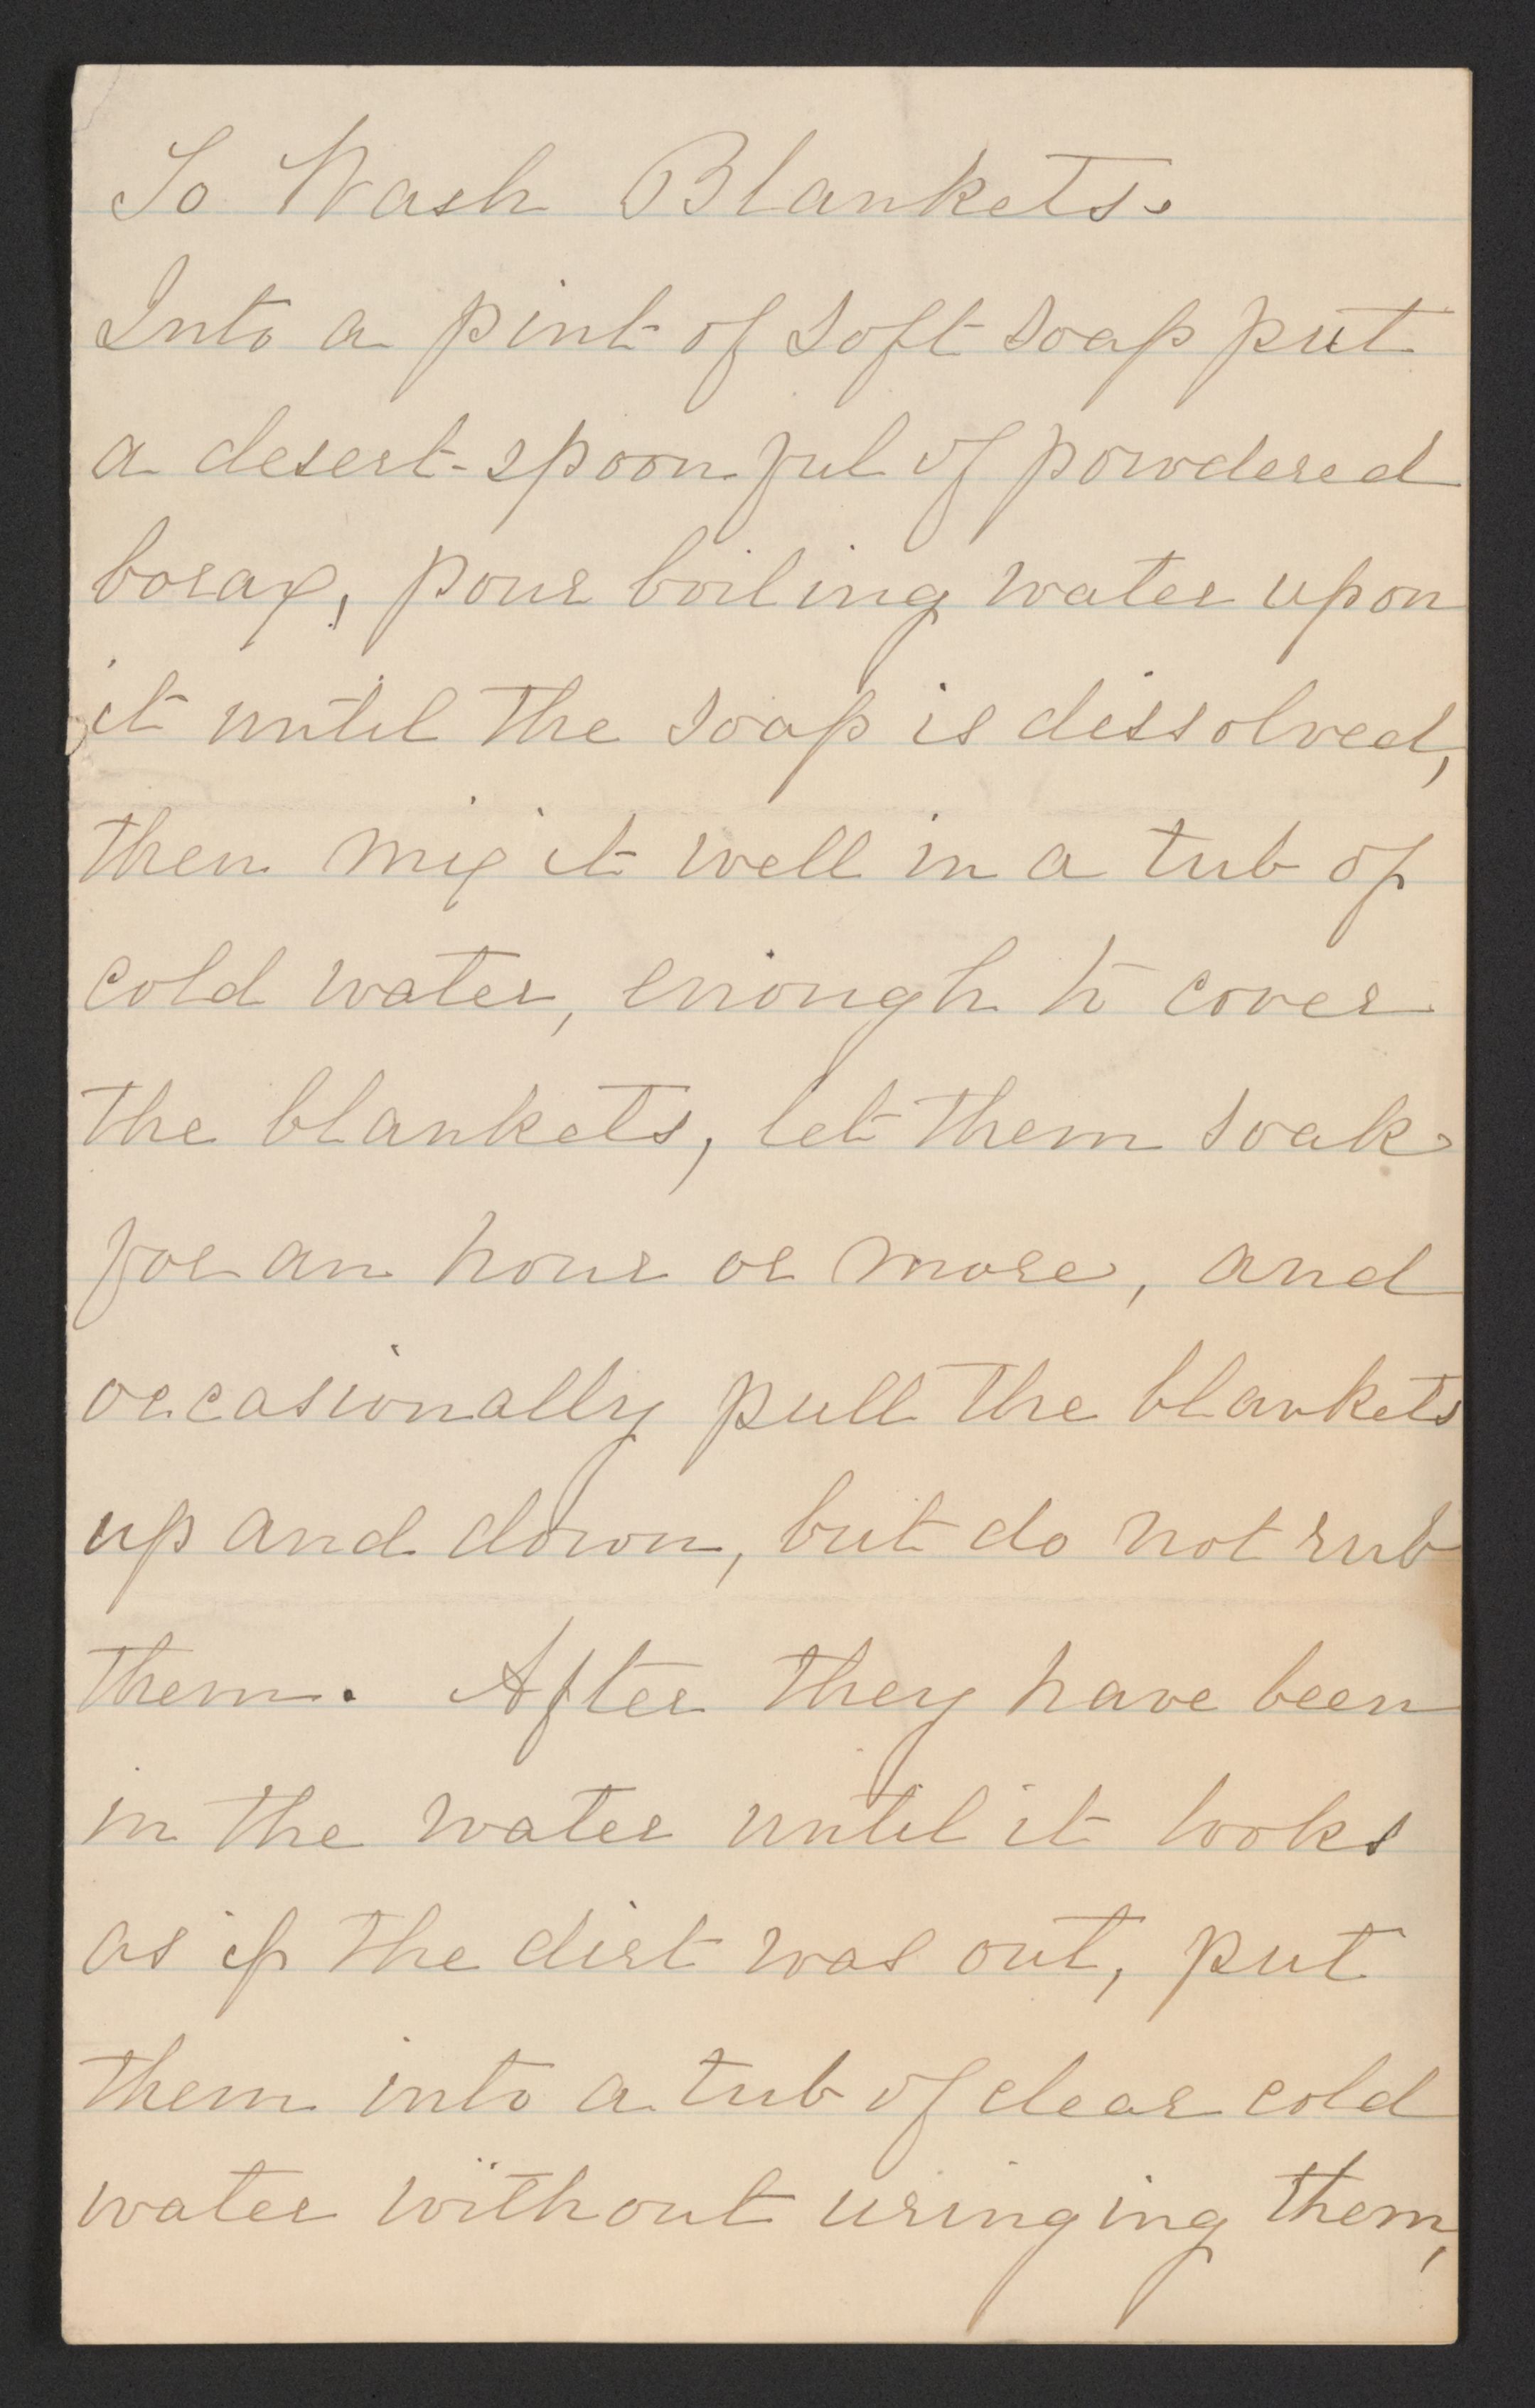 To Wash Blankets.
Into a pint of soft soap put
a desert-spoonful of powdered
borax, pour boiling water upon
it until the soap is dissolved,
then mix it well in a tub of
cold water, enough to cover
the blankets, let them soak
for an hour or more, and
occasionally pull the blankets
up and down, but do not rub
them. After they have been
in the water until it looks
as if the dirt was out, put
them into a tub of clear cold
water without wringing them,